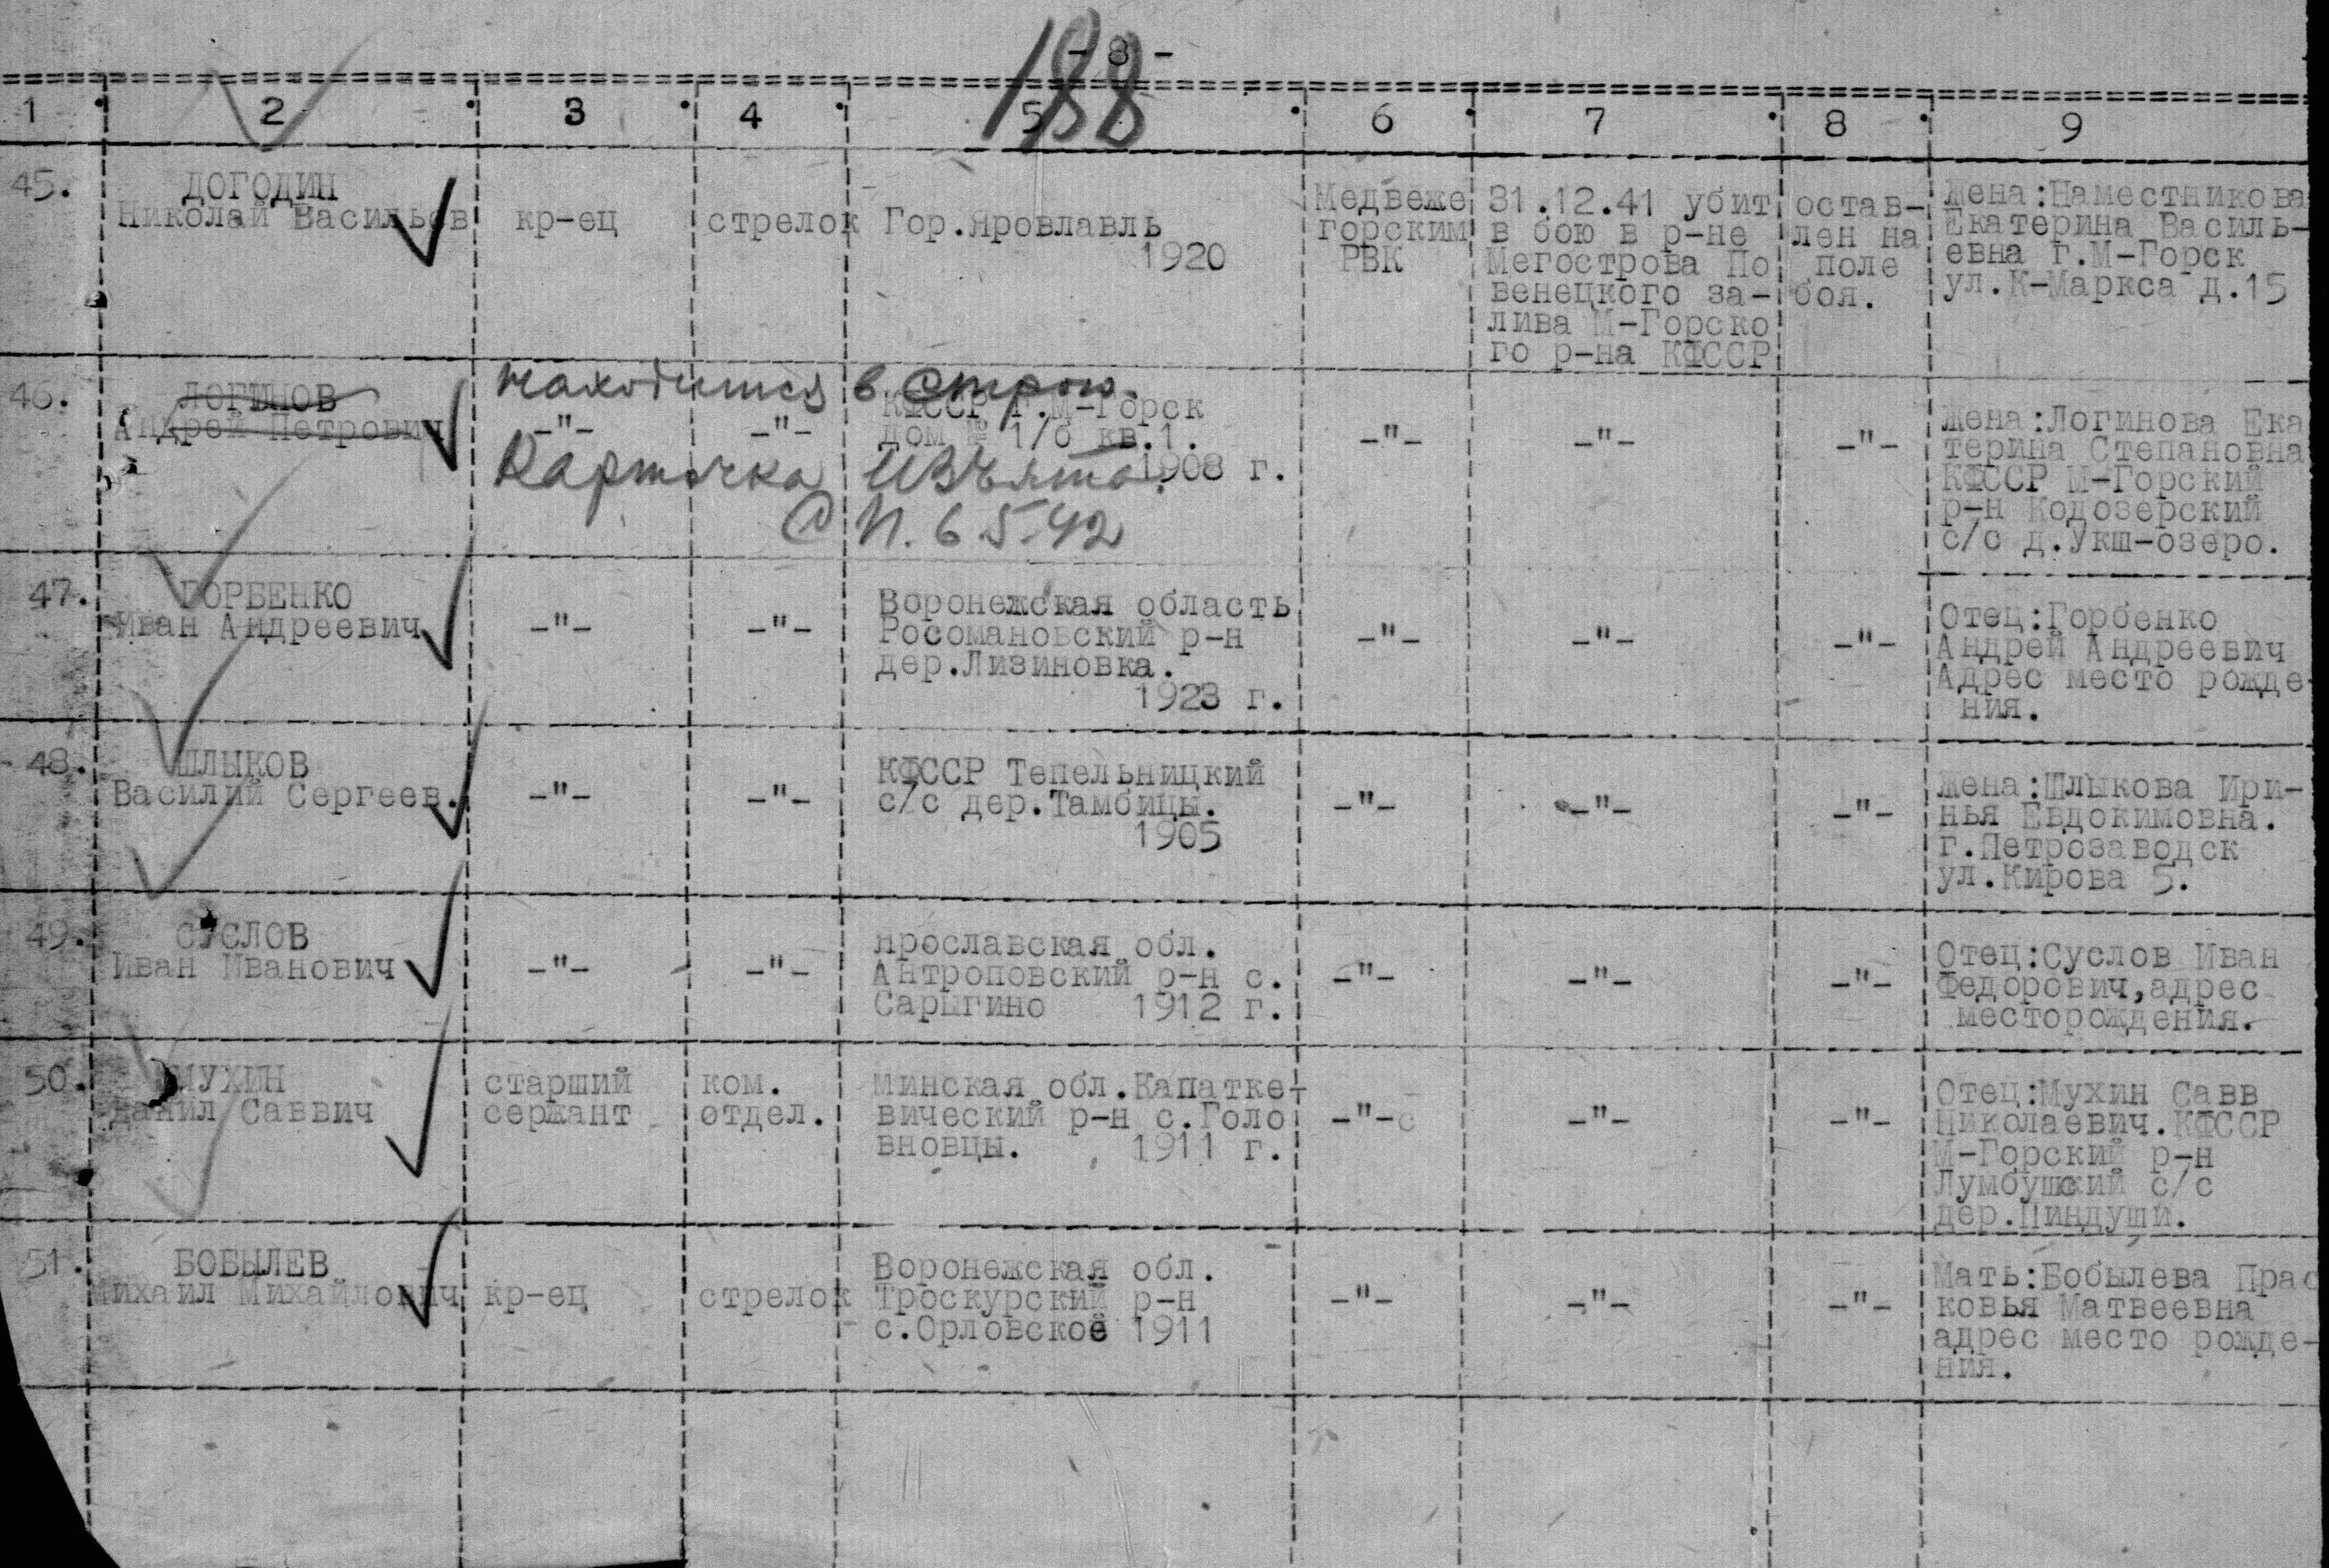 - 8 -
188
1 2 3 4 5 6 7 8 9
45.
ДОГОДИН
Николай Васильев
кр-ец
стрелок
Гор.Яровлавль
1920
Медвеже
горским
РВК
31.12.41 убит
в бою в р-не
Мегострова По
венецкого за-
лива М-Горско
го р-на КФССР
остав-
лен на
поле
боя.
Жена:Наместникова
Екатерина Василь-
евна г.М-Горск
ул.К-Маркса д.15
46.
ЛОГИНОВ
Андрей Петрович
находится в строю.
-"-
-"-
КФССР г.М-Горск
дом № 1/б кв.1.
1908 г.
Карточка изъята.
П. 6 5-42
-"-
-"-
-"-
Жена:Логинова Ека
терина Степановна
КФССР М-Горский
р-н Кодозерский
с/с д.Укш-озеро.
47.
ГОРБЕНКО
Иван Андреевич
-"-
-"-
Воронежская область
Росомановский р-н
дер.Лизиновка.
1923 г.
-"-
-"-
-"-
Отец:Горбенко
Андрей Андреевич
Адрес место рожде-
ния.
48.
ШЛЫКОВ
Василий Сергеев.
-"-
-"-
КФССР Тепельницкий
с/с дер.Тамбицы.
1905
-"-
-"-
-"-
Жена:Шлыкова Ири-
нья Евдокимовна.
г.Петрозаводск
ул.Кирова 5.
49.
СУСЛОВ
Иван Иванович
-"-
-"-
Ярославская обл.
Антроповский р-н с.
Сарыгино 1912 г.
-"-
-"-
-"-
Отец:Суслов Иван
Федорович,адрес
месторождения.
50.
МУХИН
Данил Саввич
старший
сержант
ком.
отдел.
Минская обл.Капатке-
вический р-н с.Голо
вновцы. 1911 г.
-"-с
-"-
-"-
Отец:Мухин Савв
Николаевич.КФССР
М-Горский р-н
Лумбушский с/с
дер.Пиндуши.
51.
БОБЫЛЕВ
Михаил Михайлович
кр-ец
стрелок
Воронежская обл.
Троскурский р-н
с.Орловское 1911
-"-
-"-
-"-
Мать:Бобылева Прас
ковья Матвеевна
адрес место рожде-
ния.